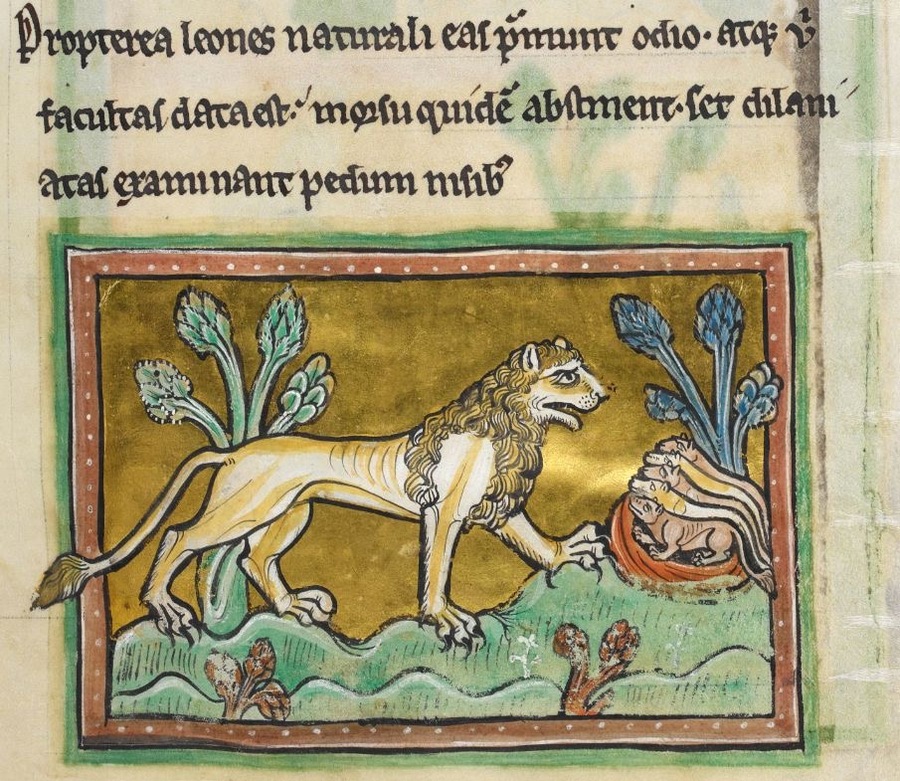 Propterea leones naturali eas p̃munt odio· atq; ũ
facultas data est·́ morsu quidē abstinent· set dilani
atas examinant pedum nisibꝰ